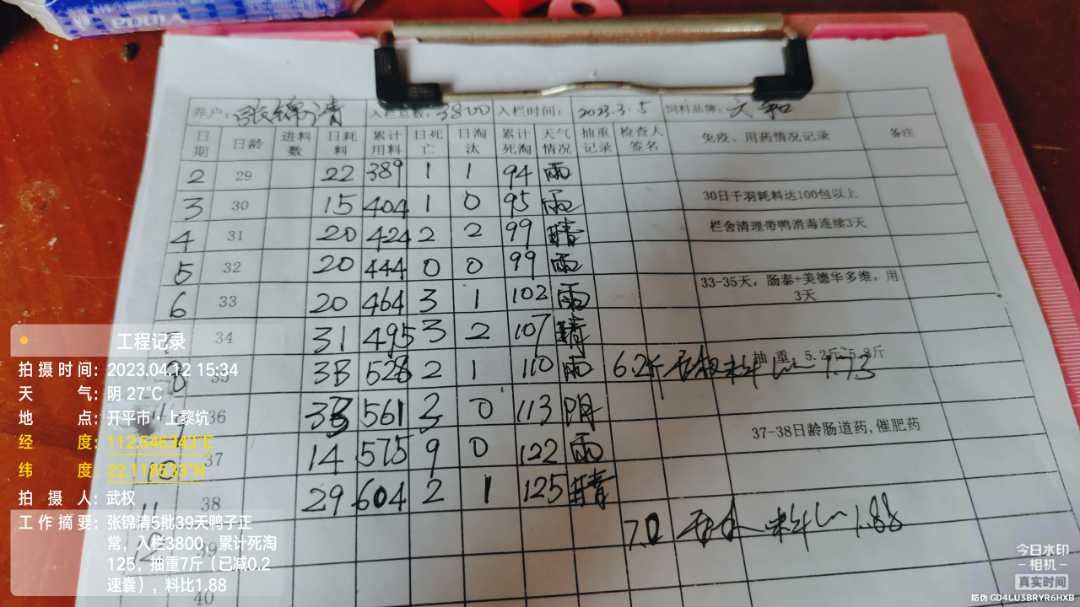 Vinda
养户: 张锦清 入栏总数: 3800 入栏时间: 2023.3.5 饲料品牌: 大和
日期 日龄 进料数 日耗料 累计用料 日死亡 日淘汰 累计死淘 天气情况 抽重记录 检查人签名 免疫、用药情况记录 备注
2 29 22 389 1 1 94 雨
3 30 15 404 1 0 95 雨 30日千羽耗料达100包以上
4 31 20 424 2 2 99 晴 栏舍清理带鸭消毒连续3天
5 32 20 444 0 0 99 雨
6 33 20 464 3 1 102 雨 33-35天，肠泰+美德华多维，用3天
34 31 495 3 2 107 晴
8 35 33 528 2 1 110 雨 6.2斤 抽重 5.2斤-5.8斤 料比 1.73
36 33 561 3 0 113 阴
10 37 14 575 9 0 122 雨 37-38日龄肠道药,催肥药
11 38 29 604 2 1 125 晴
12 39 7.0 料比 1.88
40
工程记录
拍摄时间: 2023.04.12 15:34
天气: 阴 27℃
地点: 开平市·上黎坑
经度: 112.546343°E
纬度: 22.118537°N
拍摄人: 武权
工作摘要: 张锦清5批39天鸭子正
常，入栏3800，累计死淘
125，抽重7斤（已减0.2
速囊），料比1.88
今日水印
相机
真实时间
防伪 GD4LU3BRYR6HXB